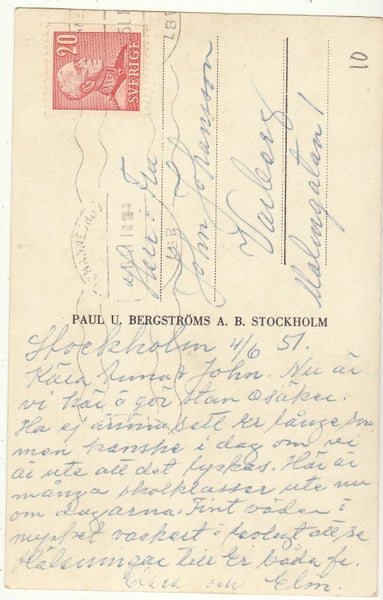 20
SVERIGE
JOHANNESHOV
10
Herr o Fru
John Johansson
Varberg
Malmgatan 1
PAUL U. BERGSTRÖMS A. B. STOCKHOLM
Stockholm 4/6 51.
Kära Anna o John. Nu är
vi här o gör stan osäker.
Ha ej ännu sett Er
men kanske i dag om vi
är ute att det lyckas. Här är
många skolklasser ute nu
om dagarna. Fint väder i
mycket vackert att se
Hälsningar till Er båda fr.
och Elm.